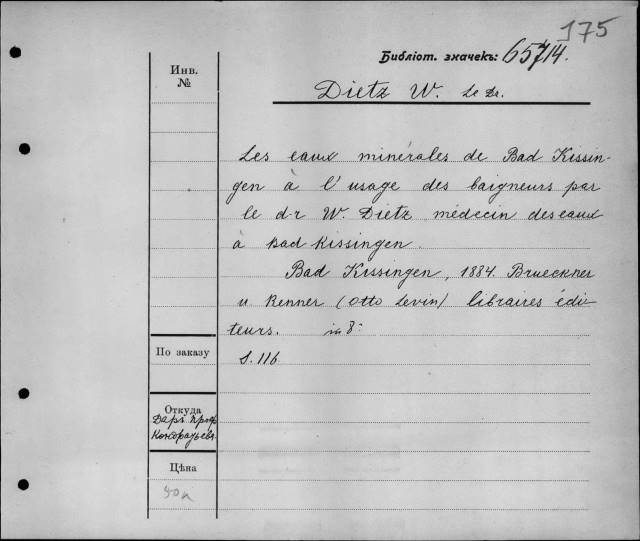 175
Библіот. значекъ: 65714.
Инв.
№
Dietz W. Le Dr.
Les eaux minérales de Bad Kissin-
gen à l'usage des baigneurs par
le dr W. Dietz médecin des eaux
à Bad Kissingen.
Bad Kissingen, 1884. Brueckner
u Renner (Otto Levin) libraires édi-
teurs. in 8º
По заказу
S. 116
Откуда
Даръ проф.
Цѣна
90к